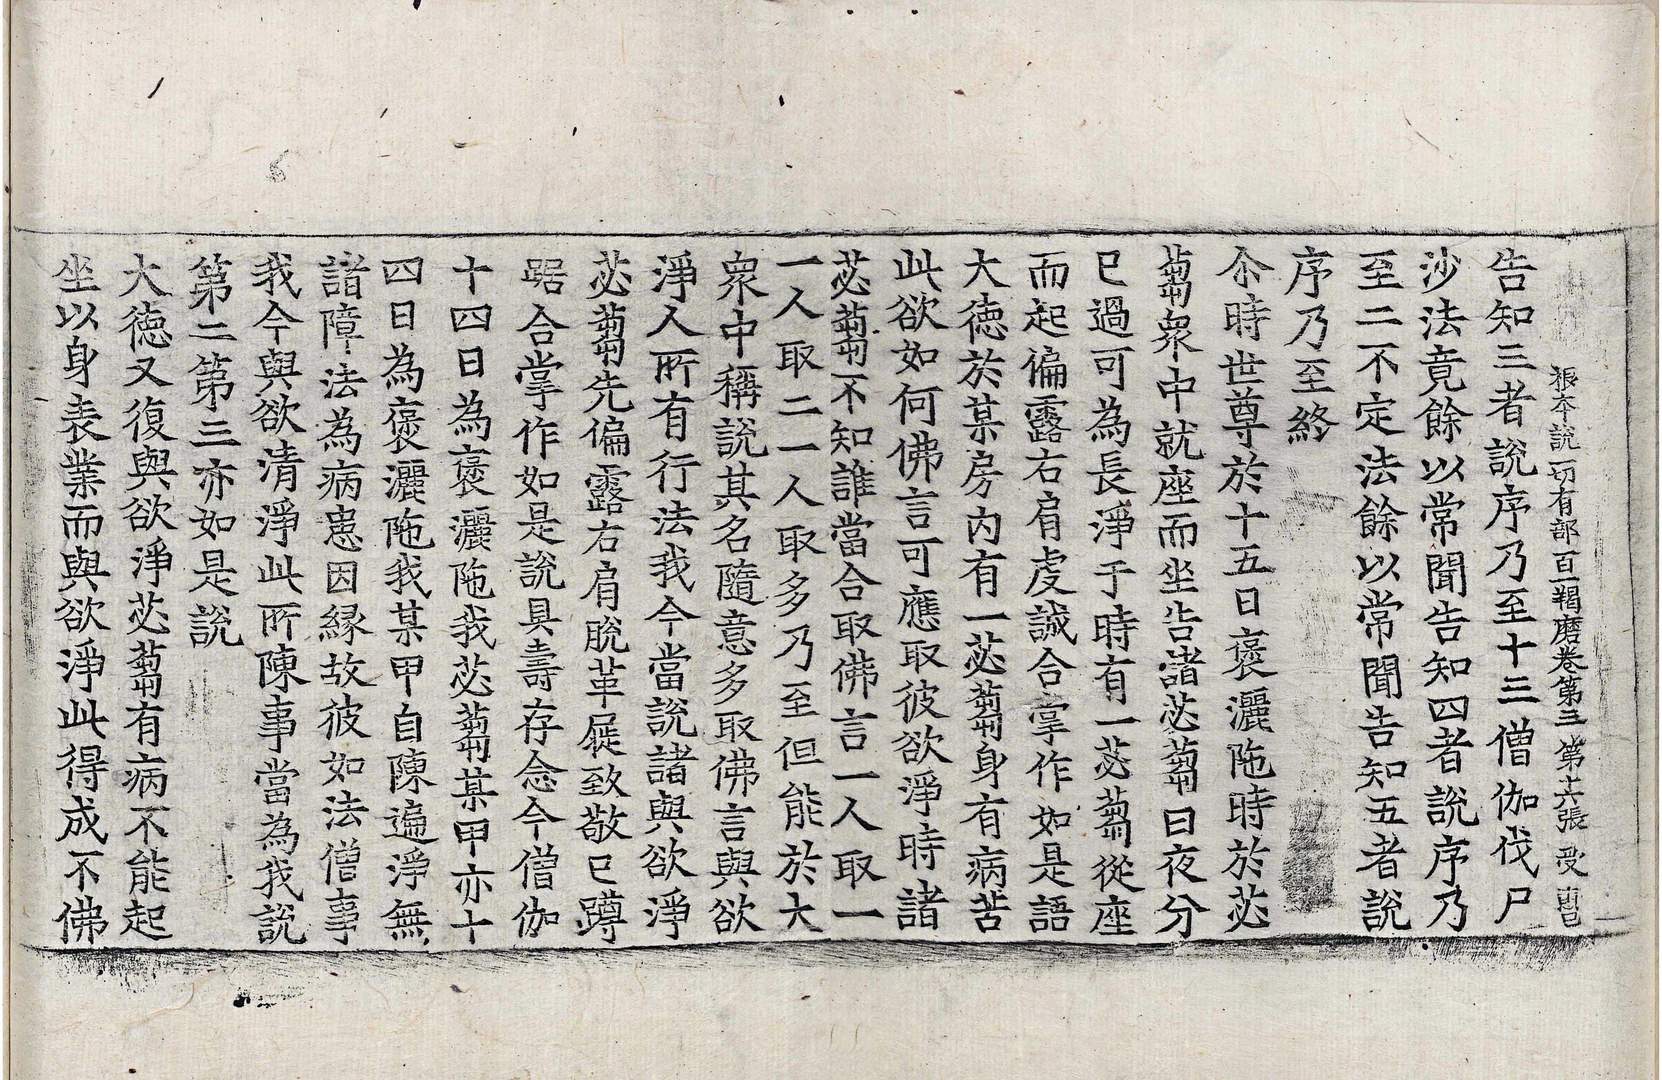 根本說一切有部百一羯磨卷第三 第十六張 受
告知三者說序乃至十三僧伽伐尸
沙法竟餘以常聞告知四者說序乃
至二不定法餘以常聞告知五者說
序乃至終
尒時世尊於十五日褒灑陁時於苾
蒭衆中就座而坐告諸苾蒭曰夜分
已過可為長淨于時有一苾蒭從座
而起偏露右肩虔誠合掌作如是語
大德於某房內有一苾蒭身有病苦
此欲如何佛言可應取彼欲淨時諸
苾蒭不知誰當合取佛言一人取一
一人取二一人取多乃至但能於大
衆中稱說其名隨意多取佛言與欲
淨人所有行法我今當說諸與欲淨
苾蒭先偏露右肩脫革屣致敬已蹲
踞合掌作如是說具壽存念今僧伽
十四日為褒灑陁我苾蒭某甲亦十
四日為褒灑陁我某甲自陳遍淨無
諸障法為病患因縁故彼如法僧事
我今與欲清淨此所陳事當為我說
第二第三亦如是說
大德又復與欲淨苾蒭有病不能起
坐以身表業而與欲淨此得成不佛